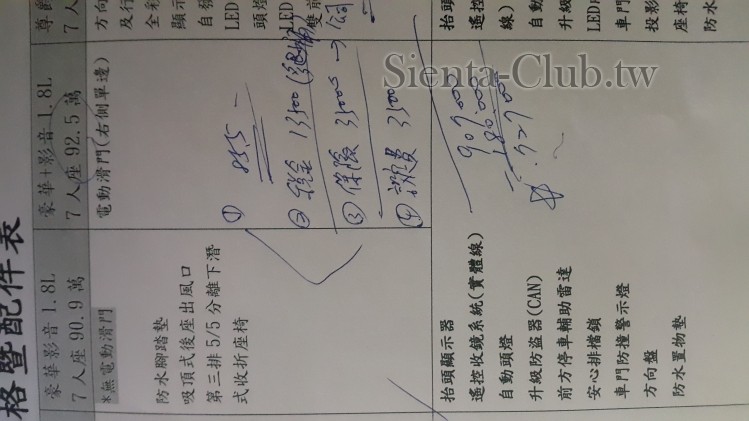 Sienta-Club.tw
格暨配件表
豪華影音 1.8L
7 人座 90.9 萬
*無電動滑門
防水腳踏墊
吸頂式後座出風口
第三排 5/5 分離下潛
式收折座椅
抬頭顯示器
遙控收鏡系統(實體線)
自動頭燈
升級防盜器(CAN)
前方停車輔助雷達
安心排檔鎖
車門防撞警示燈
方向盤
防水置物墊
豪華+影音 1.8L
7 人座 92.5 萬
電動滑門(右側單邊)
① 85.5
② 稅金 13500
③ 保險 35000
④ 領費 3500
尊爵
7 人
方向
及行
全彩
顯示
自發
LED
頭燈
LED
雙前
抬頭
遙控
線)
自動
升級
LED
車門
投影
座椅
防水